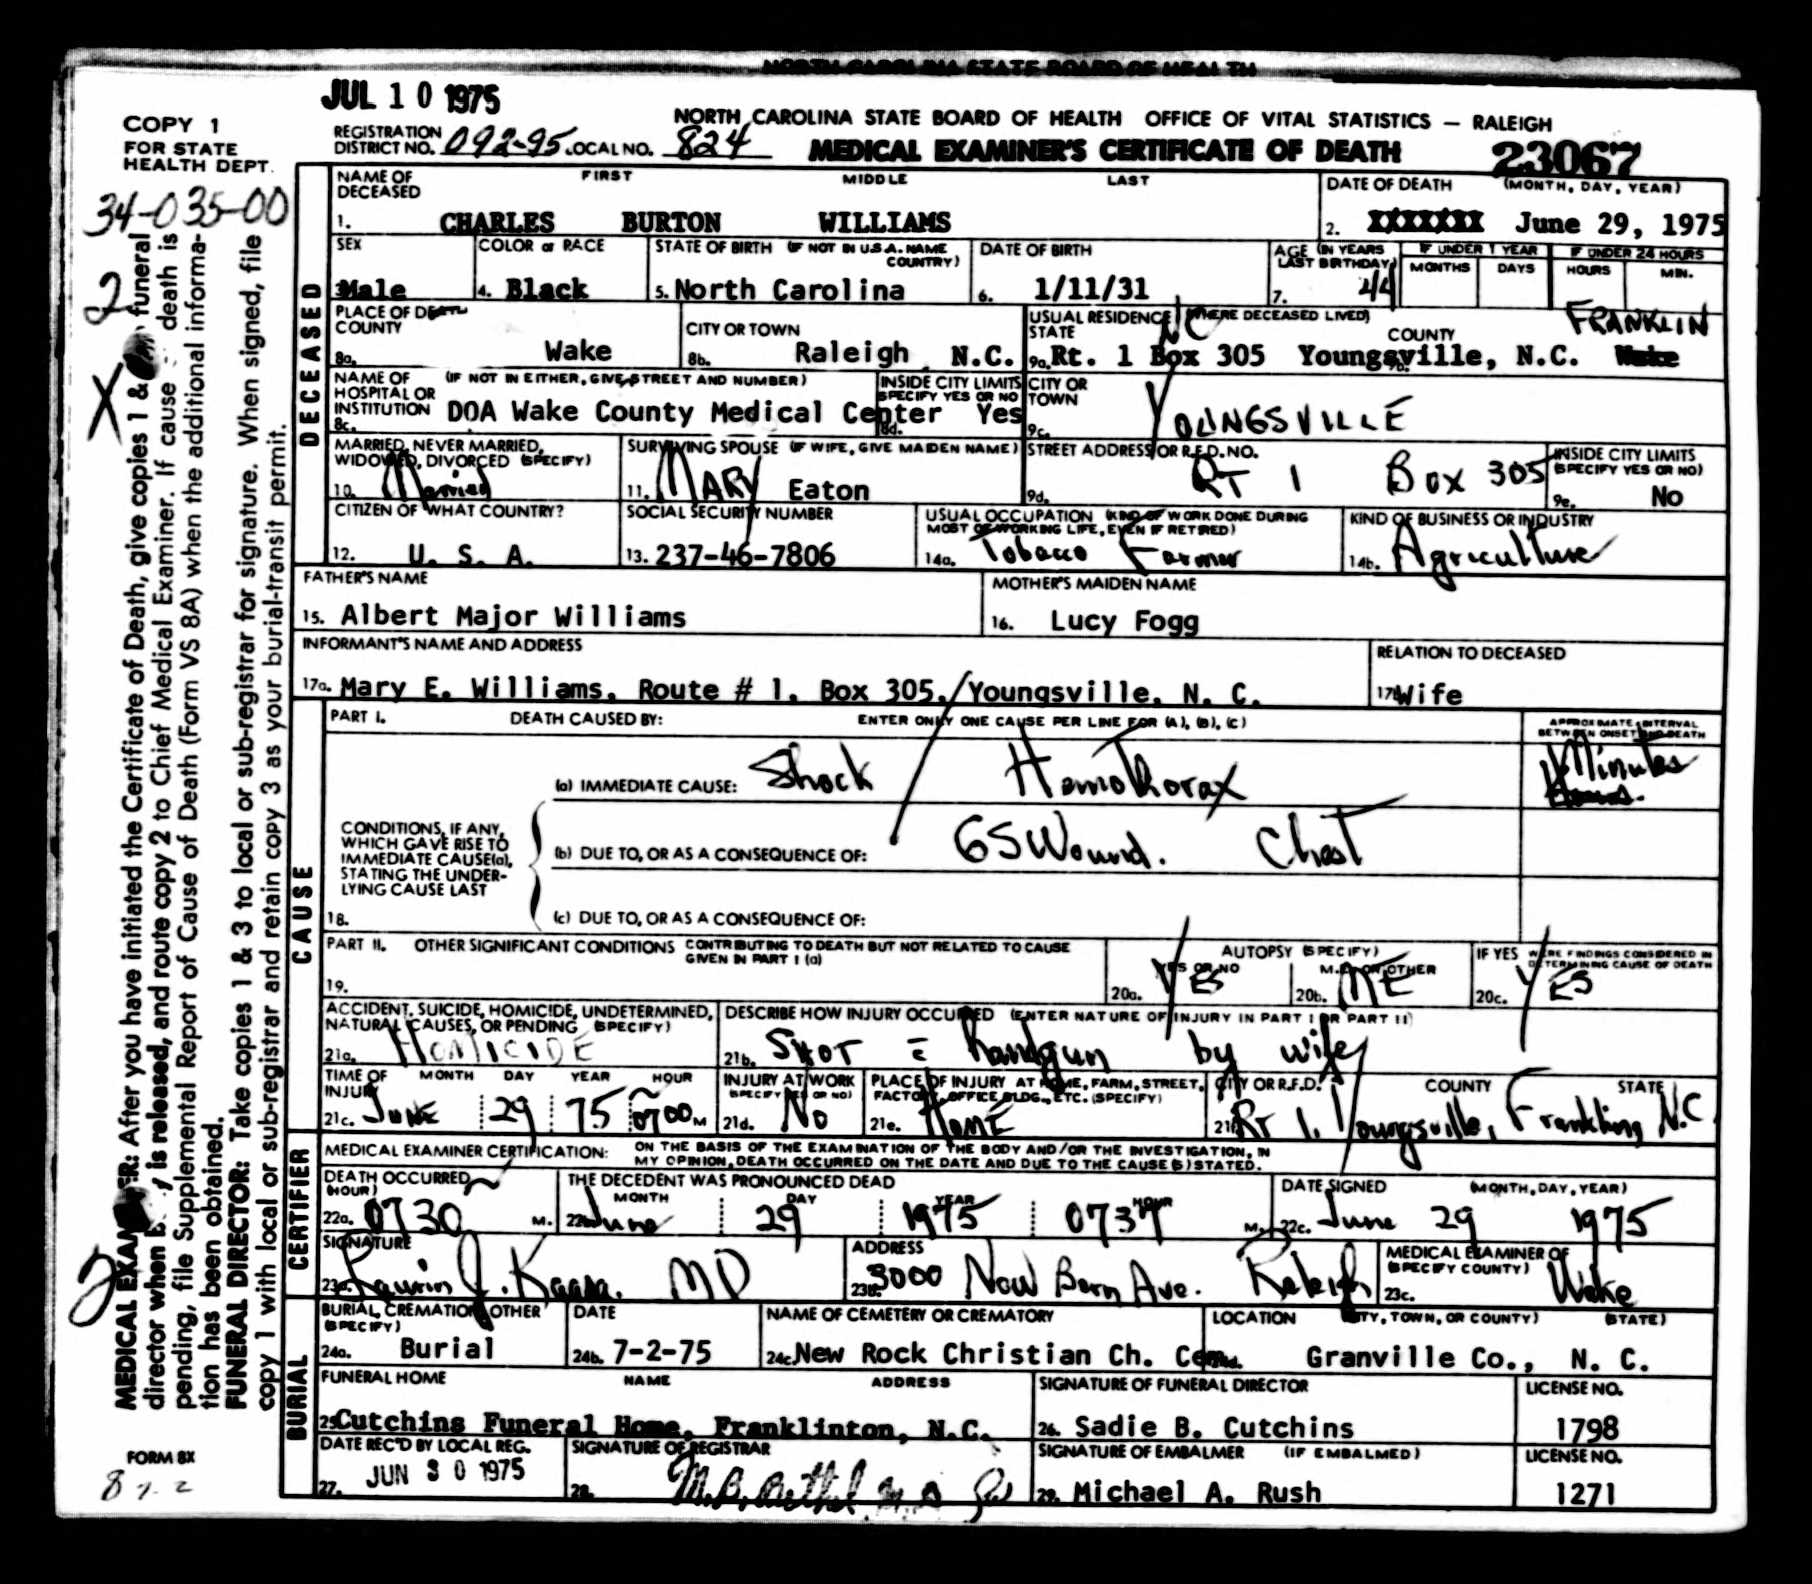 NORTH CAROLINA STATE BOARD OF HEALTH
JUL 10 1975
COPY 1
FOR STATE
HEALTH DEPT.
NORTH CAROLINA STATE BOARD OF HEALTH OFFICE OF VITAL STATISTICS — RALEIGH
REGISTRATION
DISTRICT NO. 092-95 LOCAL NO. 824
MEDICAL EXAMINER'S CERTIFICATE OF DEATH 23067
34-035-00
2
X
2
MEDICAL EXAMINER: After you have initiated the Certificate of Death, give copies 1 & funeral
director when is released, and route copy 2 to Chief Medical Examiner. If cause death is
pending, file Supplemental Report of Cause of Death (Form VS 8A) when the additional informa-
tion has been obtained.
FUNERAL DIRECTOR: Take copies 1 & 3 to local or sub-registrar for signature. When signed, file
copy 1 with local or sub-registrar and retain copy 3 as your burial-transit permit.
FORM 8X
DECEASED
NAME OF DECEASED FIRST MIDDLE LAST
1. CHARLES BURTON WILLIAMS
DATE OF DEATH (MONTH, DAY, YEAR)
2. XXXXXXX June 29, 1975
SEX
3. Male
COLOR or RACE
4. Black
STATE OF BIRTH (IF NOT IN U.S.A. NAME COUNTRY)
5. North Carolina
DATE OF BIRTH
6. 1/11/31
AGE (IN YEARS LAST BIRTHDAY)
7. 44
IF UNDER 1 YEAR
MONTHS DAYS
IF UNDER 24 HOURS
HOURS MIN.
PLACE OF DEATH
COUNTY
8a. Wake
CITY OR TOWN
8b. Raleigh N.C.
USUAL RESIDENCE (WHERE DECEASED LIVED)
STATE NC COUNTY FRANKLIN
9a. Rt. 1 Box 305 Youngsville, N.C. 9b. Wake
NAME OF HOSPITAL OR INSTITUTION (IF NOT IN EITHER, GIVE STREET AND NUMBER)
8c. DOA Wake County Medical Center
INSIDE CITY LIMITS (SPECIFY YES OR NO)
8d. Yes
CITY OR TOWN
9c. YOUNGSVILLE
MARRIED, NEVER MARRIED, WIDOWED, DIVORCED (SPECIFY)
10. Married
SURVIVING SPOUSE (IF WIFE, GIVE MAIDEN NAME)
11. MARY Eaton
STREET ADDRESS OR R.F.D. NO.
9d. RT 1 Box 305
INSIDE CITY LIMITS (SPECIFY YES OR NO)
9e. No
CITIZEN OF WHAT COUNTRY?
12. U. S. A.
SOCIAL SECURITY NUMBER
13. 237-46-7806
USUAL OCCUPATION (KIND OF WORK DONE DURING MOST OF WORKING LIFE, EVEN IF RETIRED)
14a. Tobacco Farmer
KIND OF BUSINESS OR INDUSTRY
14b. Agriculture
FATHER'S NAME
15. Albert Major Williams
MOTHER'S MAIDEN NAME
16. Lucy Fogg
INFORMANT'S NAME AND ADDRESS
17a. Mary E. Williams, Route # 1, Box 305, Youngsville, N. C.
RELATION TO DECEASED
17b. Wife
CAUSE
PART I. DEATH CAUSED BY: ENTER ONLY ONE CAUSE PER LINE FOR (A), (B), (C)
APPROXIMATE INTERVAL BETWEEN ONSET AND DEATH
(a) IMMEDIATE CAUSE: Shock HemoThorax Minutes
CONDITIONS, IF ANY, WHICH GAVE RISE TO IMMEDIATE CAUSE(a), STATING THE UNDER-LYING CAUSE LAST
(b) DUE TO, OR AS A CONSEQUENCE OF: GSWound. Chest
18. (c) DUE TO, OR AS A CONSEQUENCE OF:
PART II. OTHER SIGNIFICANT CONDITIONS CONTRIBUTING TO DEATH BUT NOT RELATED TO CAUSE GIVEN IN PART I (a)
19.
AUTOPSY (SPECIFY)
YES OR NO
20a. YES
M.E. OR OTHER
20b. ME
IF YES WERE FINDINGS CONSIDERED IN DETERMINING CAUSE OF DEATH
20c. YES
ACCIDENT, SUICIDE, HOMICIDE, UNDETERMINED, NATURAL CAUSES, OR PENDING (SPECIFY)
21a. HOMICIDE
DESCRIBE HOW INJURY OCCURED (ENTER NATURE OF INJURY IN PART I OR PART II)
21b. SHOT c Handgun by wife
TIME OF INJURY MONTH DAY YEAR HOUR
21c. JUNE 29 75 ~0700 M
INJURY AT WORK (SPECIFY YES OR NO)
21d. No
PLACE OF INJURY AT HOME, FARM, STREET, FACTORY, OFFICE BLDG., ETC. (SPECIFY)
21e. HOME
CITY OR R.F.D. COUNTY STATE
21f. RT 1. Youngsville, Franklin, N.C.
CERTIFIER
MEDICAL EXAMINER CERTIFICATION: ON THE BASIS OF THE EXAMINATION OF THE BODY AND/OR THE INVESTIGATION, IN MY OPINION, DEATH OCCURRED ON THE DATE AND DUE TO THE CAUSE(S) STATED.
DEATH OCCURRED (HOUR)
22a. ~0730 M.
THE DECEDENT WAS PRONOUNCED DEAD
MONTH DAY YEAR HOUR
22b. June 29 1975 0737 M.
DATE SIGNED (MONTH, DAY, YEAR)
22c. June 29 1975
SIGNATURE
23a. Laurin J. Kaasa. MD
ADDRESS
23b. 3000 New Bern Ave. Raleigh
MEDICAL EXAMINER OF (SPECIFY COUNTY)
23c. Wake
BURIAL
BURIAL, CREMATION, OTHER (SPECIFY)
24a. Burial
DATE
24b. 7-2-75
NAME OF CEMETERY OR CREMATORY
24c. New Rock Christian Ch. Cem.
LOCATION (CITY, TOWN, OR COUNTY) (STATE)
24d. Granville Co., N. C.
FUNERAL HOME NAME ADDRESS
25. Cutchins Funeral Home, Franklinton, N.C.
SIGNATURE OF FUNERAL DIRECTOR
26. Sadie B. Cutchins
LICENSE NO.
1798
DATE REC'D BY LOCAL REG.
27. JUN 30 1975
SIGNATURE OF REGISTRAR
28. M.B. Bethel M.D.
SIGNATURE OF EMBALMER (IF EMBALMED)
29. Michael A. Rush
LICENSE NO.
1271